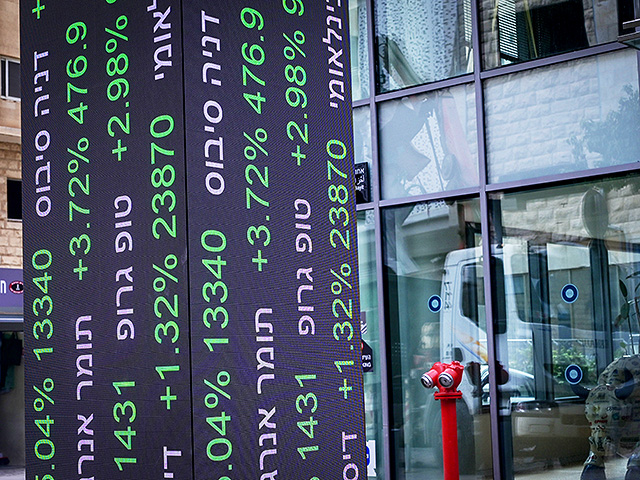 .04% 13340 דניה סיבוס +
תומר +3.72% 476.9
1431 טופ גרופ +2.98%
+1.32% 23870
.04% 13340 דניה סיבוס +
תומר +3.72% 476.9
1431 טופ גרופ +2.98%
+1.32% 23870